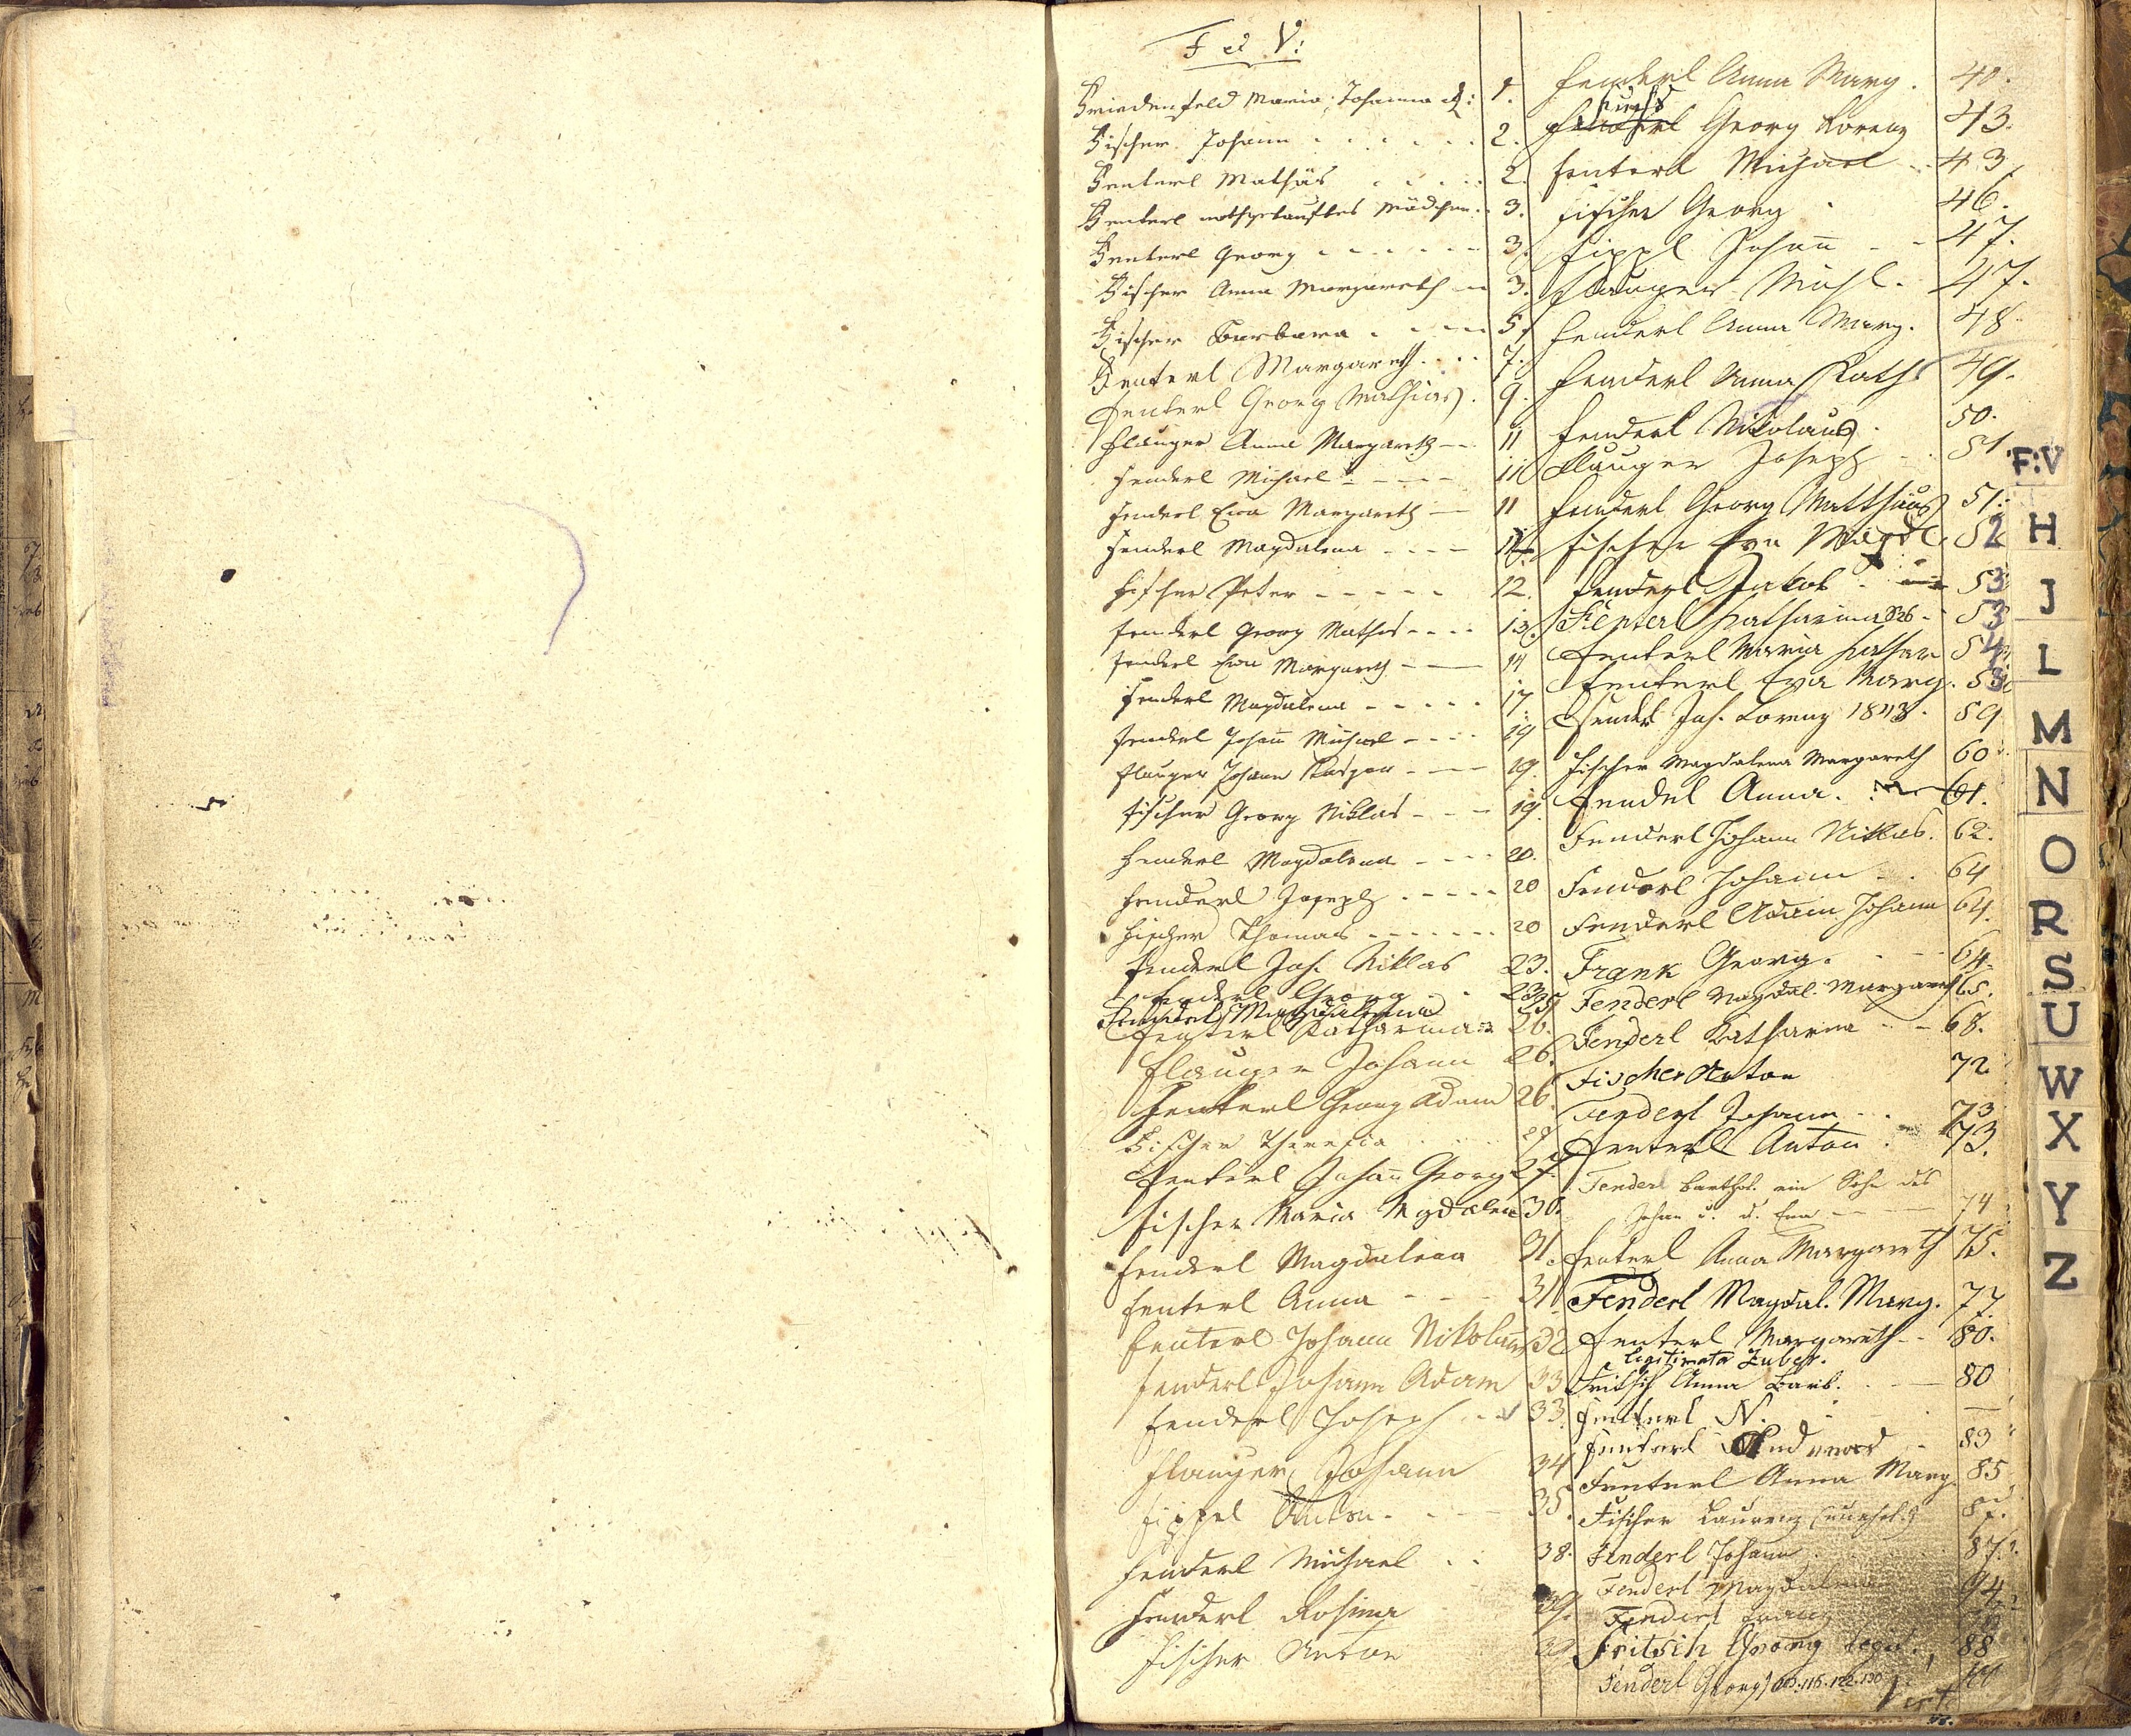 F et V:
Friedenfeld Maria Johanna 1.
Fischer Johann 2.
Fenterl Mathäs 2.
Fenterl nothgetauftes Mädchen 3.
Fenterl Georg 3.
Fischer Anna Margareth 3.
Fischer Barbara 5.
Fenterl Margareth 7.
Fenterl Georg Mathias 9.
Flauger Anna Margareth 11
Fenderl Michael 11
Fenderl Eva Margareth 11
Fenderl Magdalena
Fischer Peter 12.
Fenderl Georg Mathes 13.
Fenderl Eva Margareth 14
Fenderl Magdalena 17.
Fenderl Johann Michael 19
Flauger Johann Kaspar 19.
Fischer Georg Niklas 19.
Fenderl Magdalena 20.
Fenderl Joseph 20
Fischer Thomas 20
Fenderl Joh. Niklas 23.
Fenderl Georg 23.
Fenderl Magdalena 25
Fenterl Katharina 26.
Flauger Johann 26.
Fenterl Georg Adam 26.
Fischer Theresia
Fenterl Johann Georg 27.
Fischer Maria Mgdalen 30.
Fenderl Magdalena 31.
Fenterl Anna 31
Fenterl Johann Nikolaus 32
Fenderl Johann Adam 33
Fenderl Joseph 33.
Flauger Johann 34
Fippel Anton 35.
Fenderl Michael 38.
Fenderl Rosina 39.
Fischer Anton 39
Fenderl Anna Marg. 40.
Fuchs
Fenderl Georg Lorenz 43.
Fenterl Michael 43.
Fischer Georg 46.
Fippl Johann 47.
Flauger Michl. 47.
Fenderl Anna Marg. 48
Fenderl Anna Kath 49.
Fenderl Nikolaus 50.
Flauger Joseph 51.
Fenderl Georg Matthäus 51.
Fischer Eva Magdl. 52
Fenderl Jakob 53
Fenterl Katharina 53
Fenterl Maria Kathar 54
Fenterl Eva Marg. 58
Fenderl Joh. Lorenz 1843. 59
Fischer Magdalena Margareth 60
Fendel Anna. 61.
Fenderl Johann Niklas. 62.
Fenderl Johann 64
Fenderl Adam Johann 64.
Frank Georg. 64.
Fenderl Magdal. Margareth 65.
Fenderl Katharina 68.
Fischer Anton 72
Fenderl Johann 73
Fenterl Anton 73.
Fenderl Barthol. ein Sohn des
Johan u. d. Eva 74
Fenterl Anna Margareth 75.
Fenderl Magdal. Marg. 77.
Fenterl Margareth 80.
legitimata
Fritsch Anna Barb. 80
Fenterl N.
Fenterl Andreas 83
Fenterl Anna Marg 85
Fischer Laurenz 87.
Fenderl Johann 87.
Fenderl Magdalena 94
Fenderl Franz
Fritsch Georg legit. 88
Fenderl Georg 116. 122. 130
Vert.
F:V
H
J
L
M
N
O
R
S
U
W
X
Y
Z